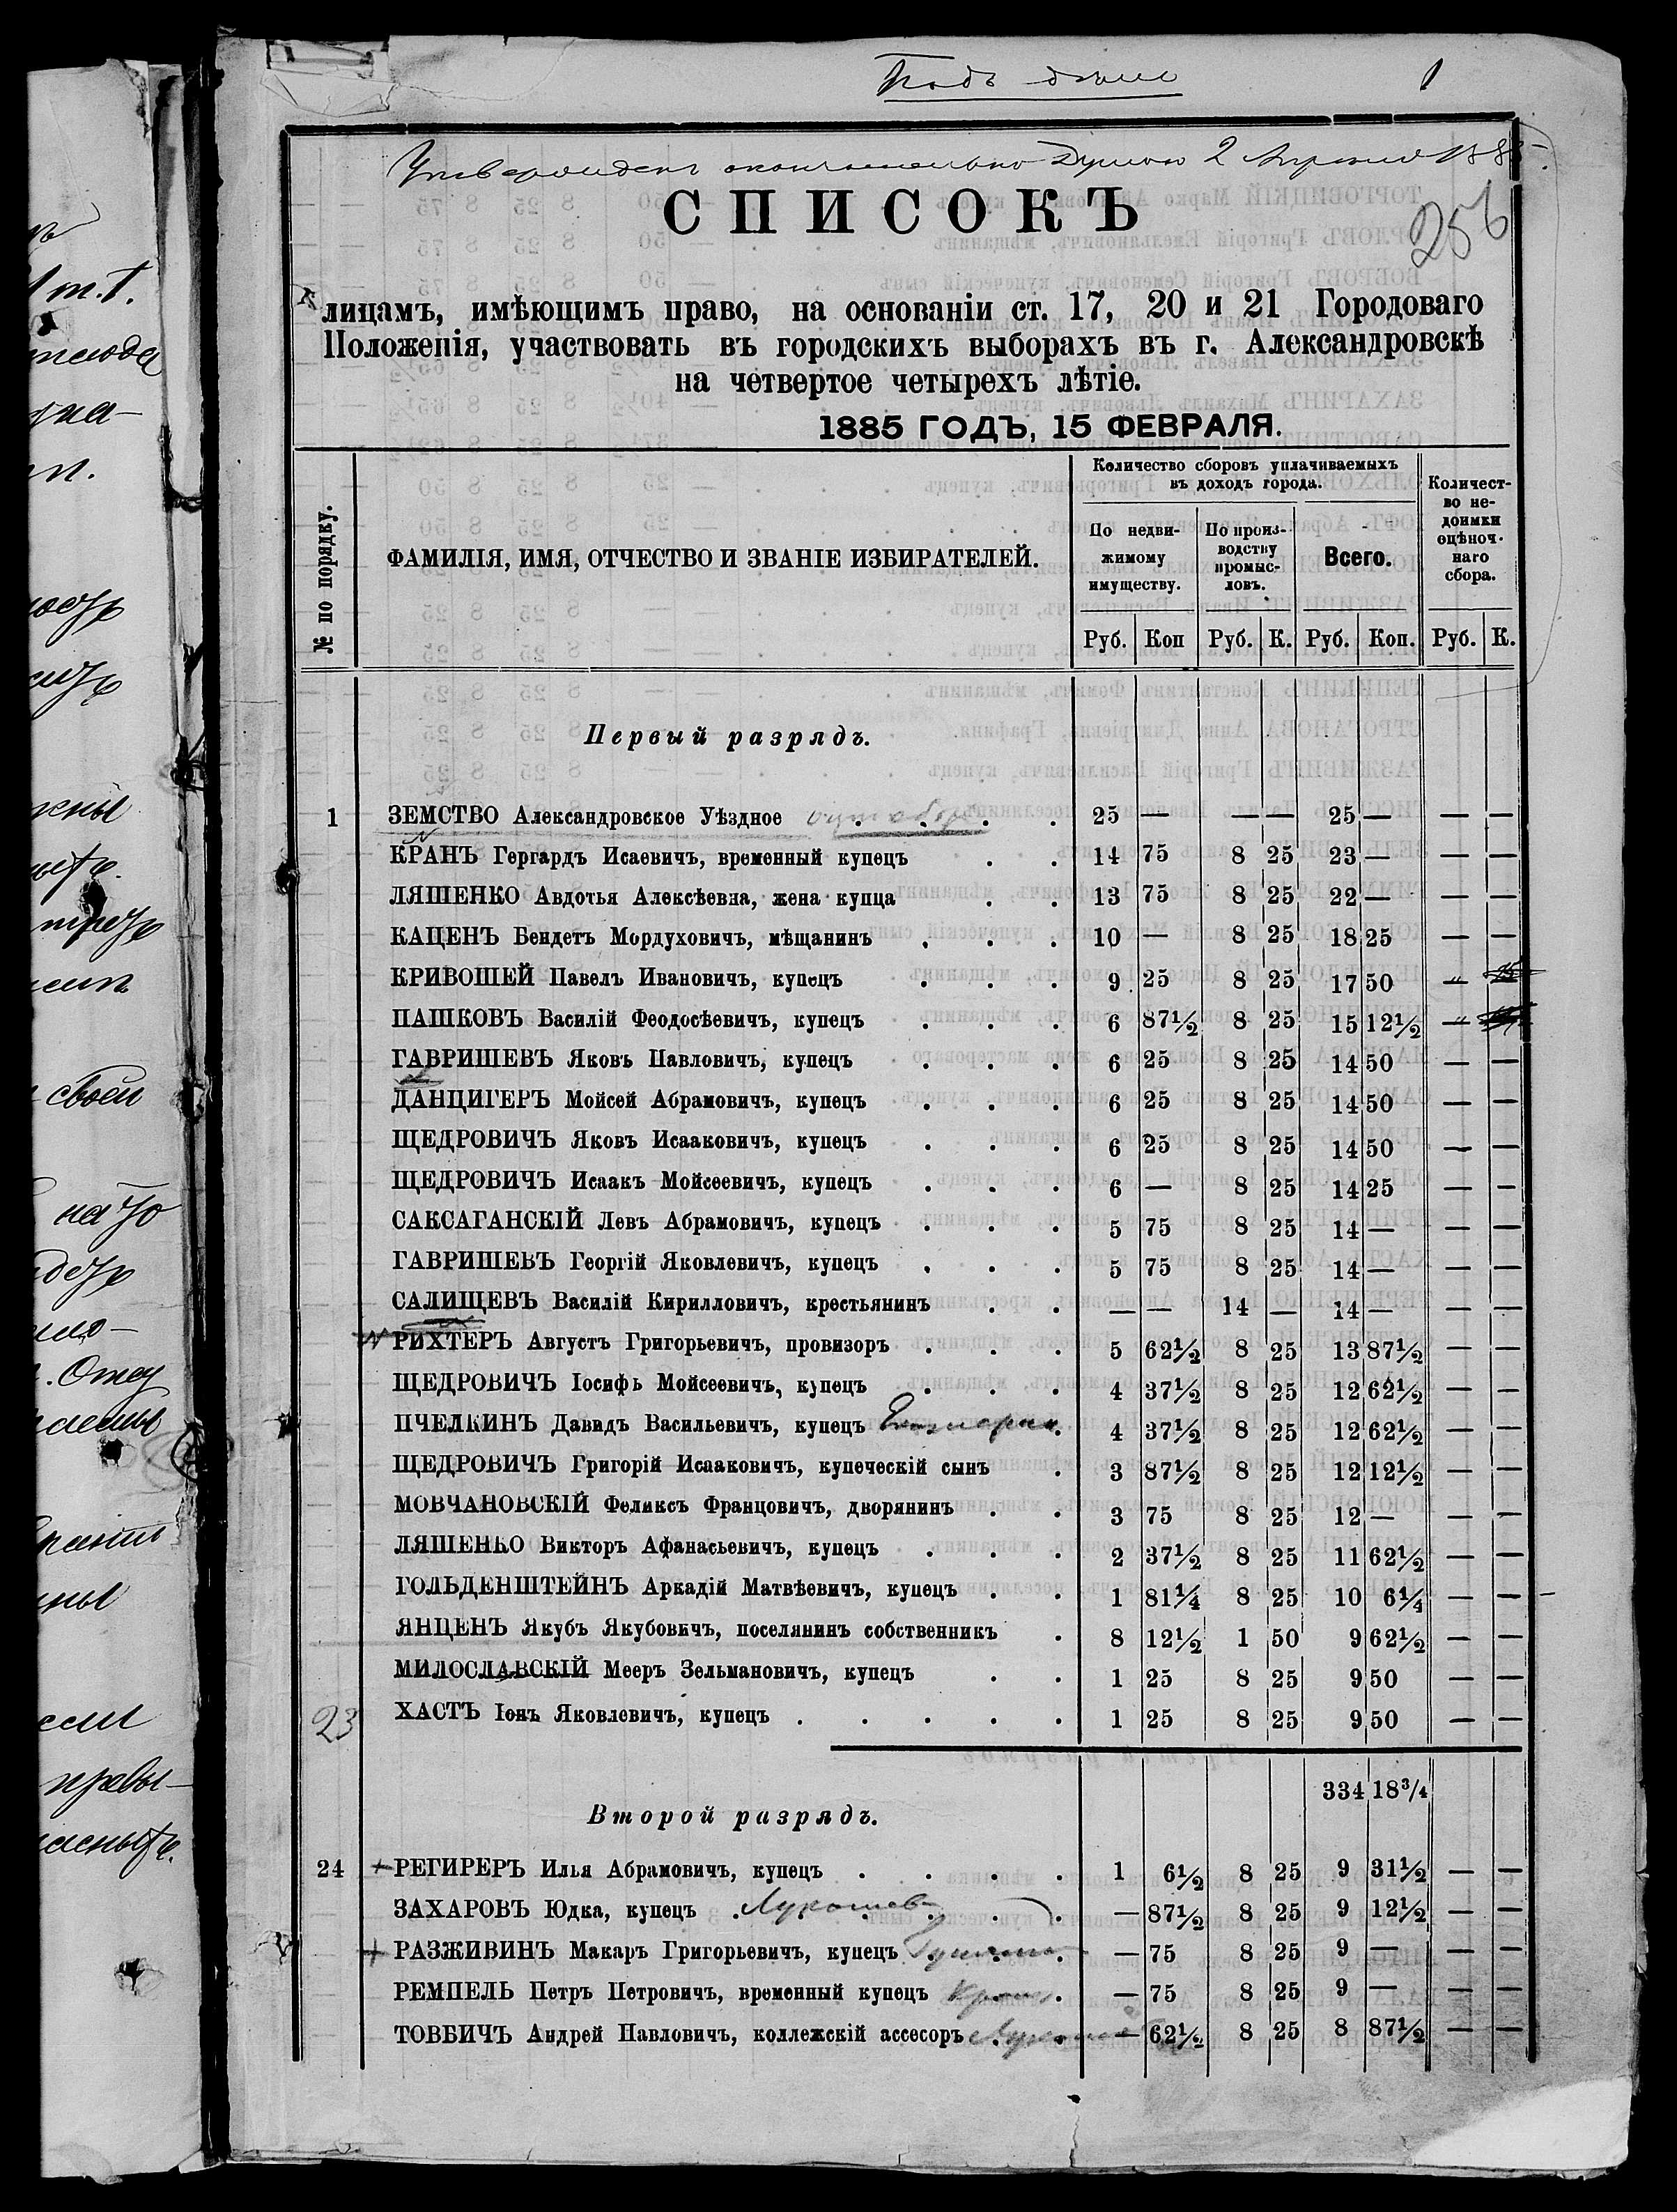 1
2 Апрѣля 188
СПИСОКЪ
256
лицамъ, имѣющимъ право, на основаніи ст. 17, 20 и 21 Городоваго
Положенія, участвовать въ городскихъ выборахъ въ г. Александровскѣ
на четвертое четырехъ лѣтіе.
1885 ГОДЪ, 15 ФЕВРАЛЯ.
№ по порядку.
ФАМИЛІЯ, ИМЯ, ОТЧЕСТВО И ЗВАНІЕ ИЗБИРАТЕЛЕЙ.
Количество сборовъ уплачиваемыхъ
въ доходъ города.
По недви-
жимому
имуществу.
По произ-
водству
промыс-
ловъ.
Всего.
Количест-
во не-
доимки
оцѣноч-
наго
сбора.
Руб. Коп Руб. К. Руб. Коп. Руб. К.
Первый разрядъ.
1 ЗЕМСТВО Александровское Уѣздное . . . 25 — — — 25 — — —
КРАНЪ Гергардъ Исаевичъ, временный купецъ . . 14 75 8 25 23 — — —
ЛЯШЕНКО Авдотья Алексѣевна, жена купца . . 13 75 8 25 22 — — —
КАЦЕНЪ Бендетъ Мордуховичъ, мѣщанинъ . . . 10 — 8 25 18 25 — —
КРИВОШЕЙ Павелъ Ивановичъ, купецъ . . . 9 25 8 25 17 50 —
ПАШКОВЪ Василій Феодосѣевичъ, купецъ . . . 6 87½ 8 25 15 12½ —
ГАВРИШЕВЪ Яковъ Павловичъ, купецъ . . . 6 25 8 25 14 50 — —
ДАНЦИГЕРЪ Мойсей Абрамовичъ, купецъ . . . 6 25 8 25 14 50 — —
ЩЕДРОВИЧЪ Яковъ Исааковичъ, купецъ . . . 6 25 8 25 14 50 — —
ЩЕДРОВИЧЪ Исаакъ Мойсеевичъ, купецъ . . . 6 — 8 25 14 25 — —
САКСАГАНСКІЙ Левъ Абрамовичъ, купецъ . . . 5 75 8 25 14 — — —
ГАВРИШЕВЪ Георгій Яковлевичъ, купецъ . . . 5 75 8 25 14 — — —
САЛИЩЕВЪ Василій Кирилловичъ, крестьянинъ . . — — 14 — 14 — — —
РИХТЕРЪ Августъ Григорьевичъ, провизоръ . . . 5 62½ 8 25 13 87½ — —
ЩЕДРОВИЧЪ Іосифъ Мойсеевичъ, купецъ . . . 4 37½ 8 25 12 62½ — —
ПЧЕЛКИНЪ Давидъ Васильевичъ, купецъ . 4 37½ 8 25 12 62½ — —
ЩЕДРОВИЧЪ Григорій Исааковичъ, купеческій сынъ . 3 87½ 8 25 12 12½ — —
МОВЧАНОВСКІЙ Феликсъ Францовичъ, дворянинъ . . 3 75 8 25 12 — — —
ЛЯШЕНКО Викторъ Афанасьевичъ, купецъ . . . 2 37½ 8 25 11 62½ — —
ГОЛЬДЕНШТЕЙНЪ Аркадій Матвѣевичъ, купецъ . . 1 81¼ 8 25 10 6¼ — —
ЯНЦЕНЪ Якубъ Якубовичъ, поселянинъ собственникъ . 8 12½ 1 50 9 62½ — —
МИЛОСЛАВСКІЙ Мееръ Зельмановичъ, купецъ . . 1 25 8 25 9 50 — —
23 ХАСТЪ Іонъ Яковлевичъ, купецъ . . . . . 1 25 8 25 9 50 — —
334 18¾
Второй разрядъ.
24 + РЕГИРЕРЪ Илья Абрамовичъ, купецъ . . . . 1 6½ 8 25 9 31½ — —
ЗАХАРОВЪ Юдка, купецъ . . . . . — 87½ 8 25 9 12½ — —
+ РАЗЖИВИНЪ Макаръ Григорьевичъ, купецъ . . . — 75 8 25 9 — — —
РЕМПЕЛЬ Петръ Петровичъ, временный купецъ . . — 75 8 25 9 — — —
ТОВБИЧЪ Андрей Павловичъ, коллежскій ассесоръ . . — 62½ 8 25 8 87½ — —